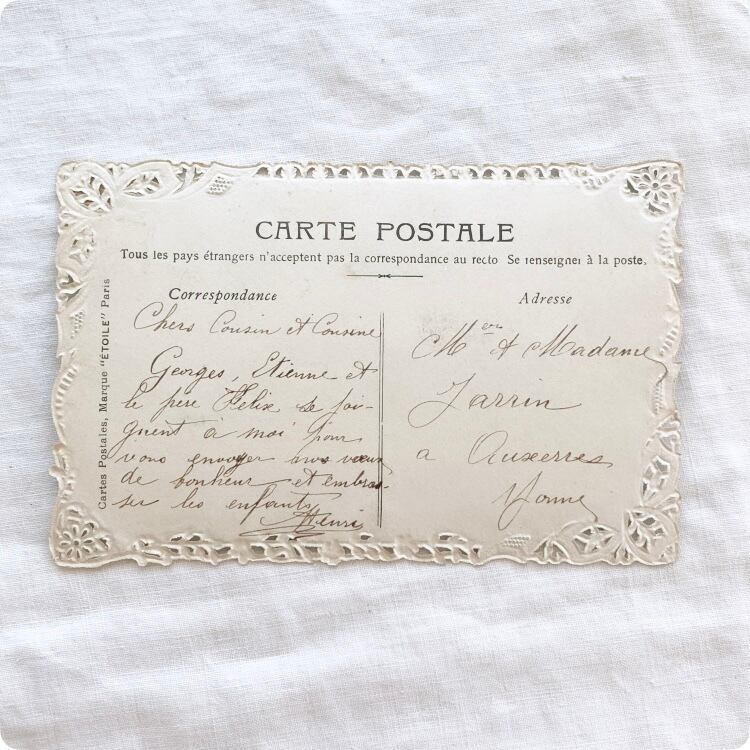 CARTE POSTALE
Tous les pays étrangers n'acceptent pas la correspondance au recto Se renseigner à la poste.
Correspondance
Chers Cousin et Cousine
Georges, Etienne et
le père Felix se joi-
gnent à moi pour
vous envoyer nos vœux
de bonheur et embras-
ser les enfants
Henri
Adresse
Mr et Madame
Jarrin
a Auxerres
Yonne
Cartes Postales, Marque "ÉTOILE" Paris